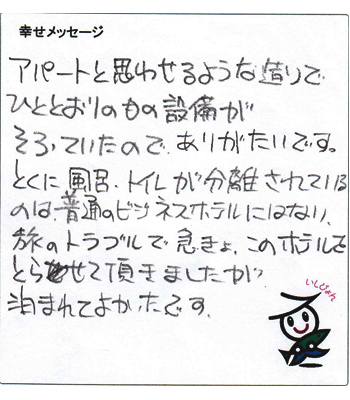 幸せメッセージ
アパートと思わせるような造りで
ひととおりのもの設備が
そろっていたので、ありがたいです。
とくに風呂、トイレが分離されている
のは、普通のビジネスホテルにはない、
旅のトラブルで急きょ、このホテルを
とらせて頂きましたが
泊まれてよかったです。
いしじょん